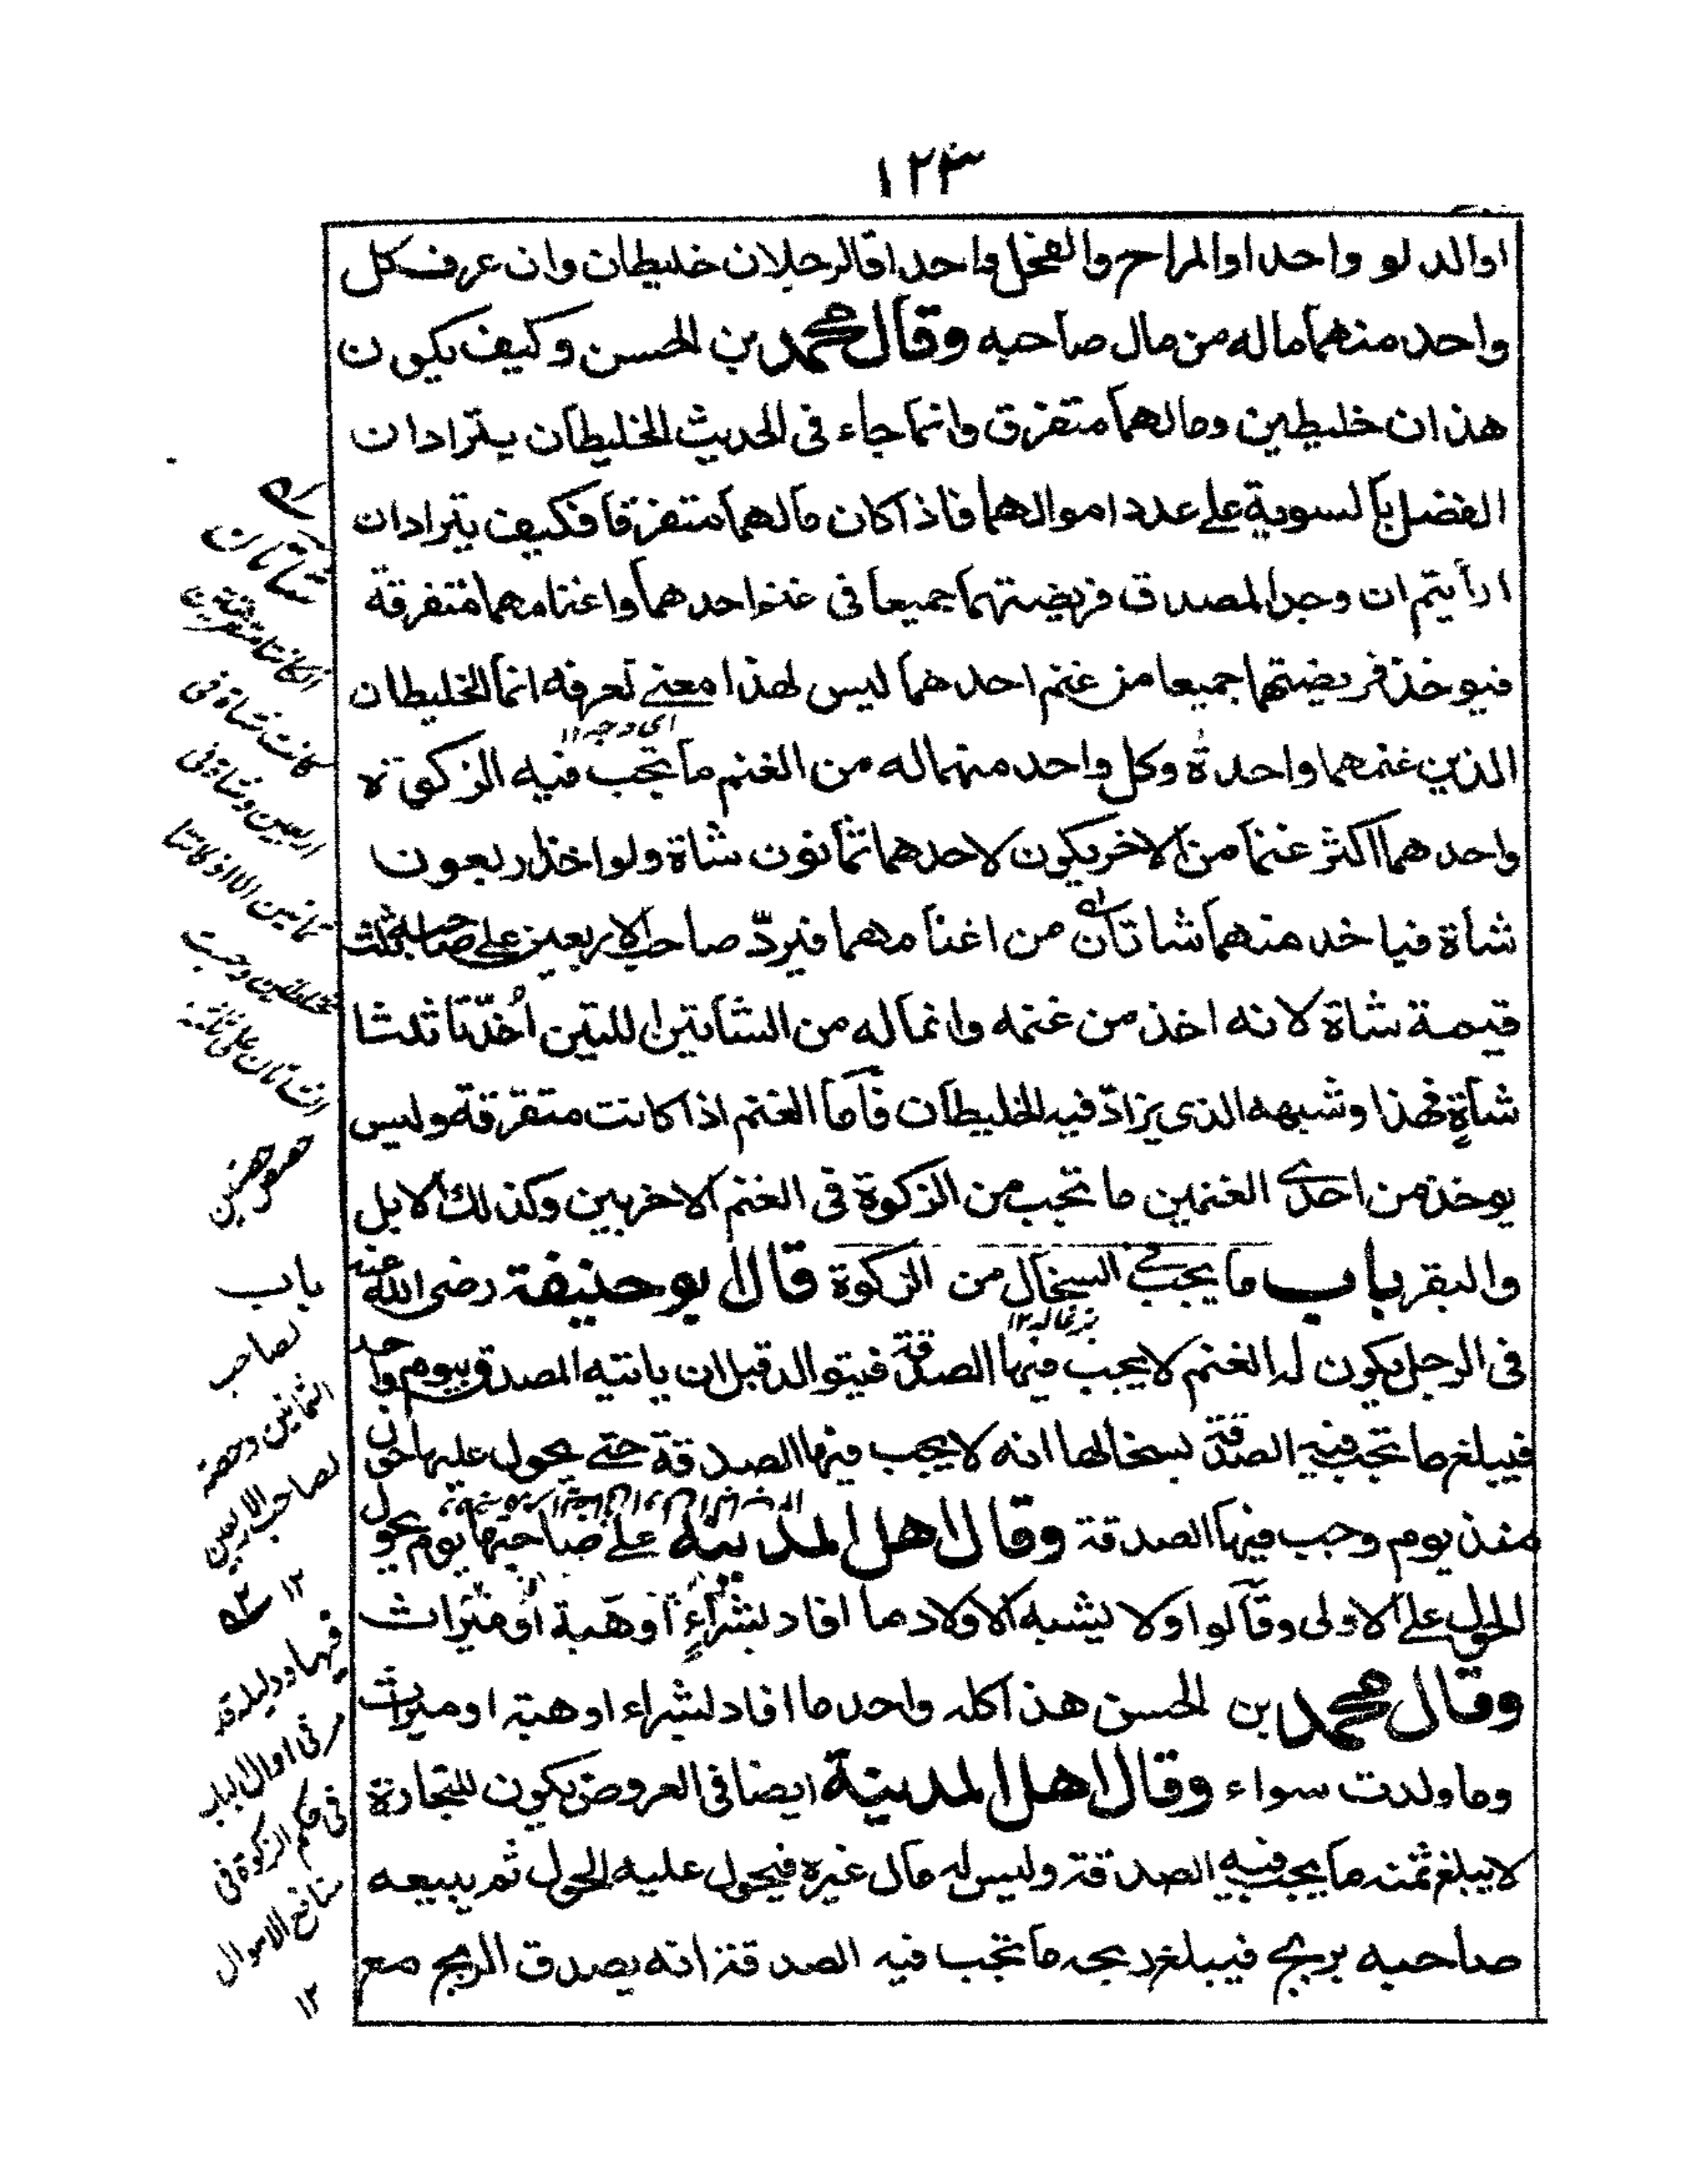 ١٢٣
اوالدلو واحدا اوالمراح والفحل واحدا فالرجلان خليطان وان عرف كل
واحد منهما ماله من مال صاحبه وقال محمد بن الحسن وكيف يكون
هذان خليطين ومالهما متفرق وانما جاء فى الحديث الخليطان يترادان
الفضل بالسوية على عدد اموالهما فاذا كان مالهما متفرقا فكيف يترادان
ارأيتم ان وجد المصدق فريضتهما جميعا فى غنم احدهما واغنامهما متفرقة
فيوخذ فريضتهما جميعا من غنم احدهما ليس لهذا معنے نعرفه انما الخليطان
اى وجه ١٢
الذين غنمهما واحدة وكل واحد منهما له من الغنم ما تجب فيه الزكوة
واحدهما اكثر غنما من الاخر يكون لاحدهما ثمانون شاة ولواخذ اربعون
شاة فياخد منهما شاتان من اغنامهما فيردّ صاحب الاربعين على صاحبه ثلث
قيمة شاة لانه اخذ من غنمه وانما له من الشاتين اللتين اُخذتا ثلثا
شاةٍ فهذا وشبهه الذى يترادّ فيه الخليطان فأما الغنم اذا كانت متفرقة وليس
يوخذ من احدى الغنمين ما تجب من الزكوة فى الغنم الاخريين وكذلك الابل
والبقر باب ما يجب فے السخال من الزكوة قال ابو حنيفة رضى الله عنه
بزغاله ١٢
فى الرجل يكون له الغنم لا يجب فيها الصدقة فيتوالد قبل ان ياتيه المصدق بيوم واحد
فيبلغ ما تجب فيه الصدقة بسخالها انه لا يجب فيها الصدقة حتے يحول عليها حول
منذ يوم وجب فيها الصدقة وقال اهل المدينة علے صاحبها يوم يحول
الحول علے الاولى وقالوا ولا يشبه الاولاد ما افاد بشراءٍ أو هبة أو ميراث
وقال محمد بن الحسن هذا كله واحد ما افاد لشراء او هبة او ميراث
وما ولدت سواء وقال اهل المدينة ايضا فى العروض يكون للتجارة
لا يبلغ ثمنه ما يجب فيه الصدقة وليس له مال غيره فيحول عليه الحول ثم يبيعه
صاحبه بربح فيبلغ ربحه ما تجب فيه الصدقة انه يصدق الربح مع
شاتان
كانت شاة فى
اربعين وشاة فى
ثمانين
الشاتان على
حصصهن
باب
لصاحب
الثمانين وحصة
لصاحب الاربعين
١٢
مر فى اوائل الباب
فى حكم الزكوة فى
منافع الاموال
١٢